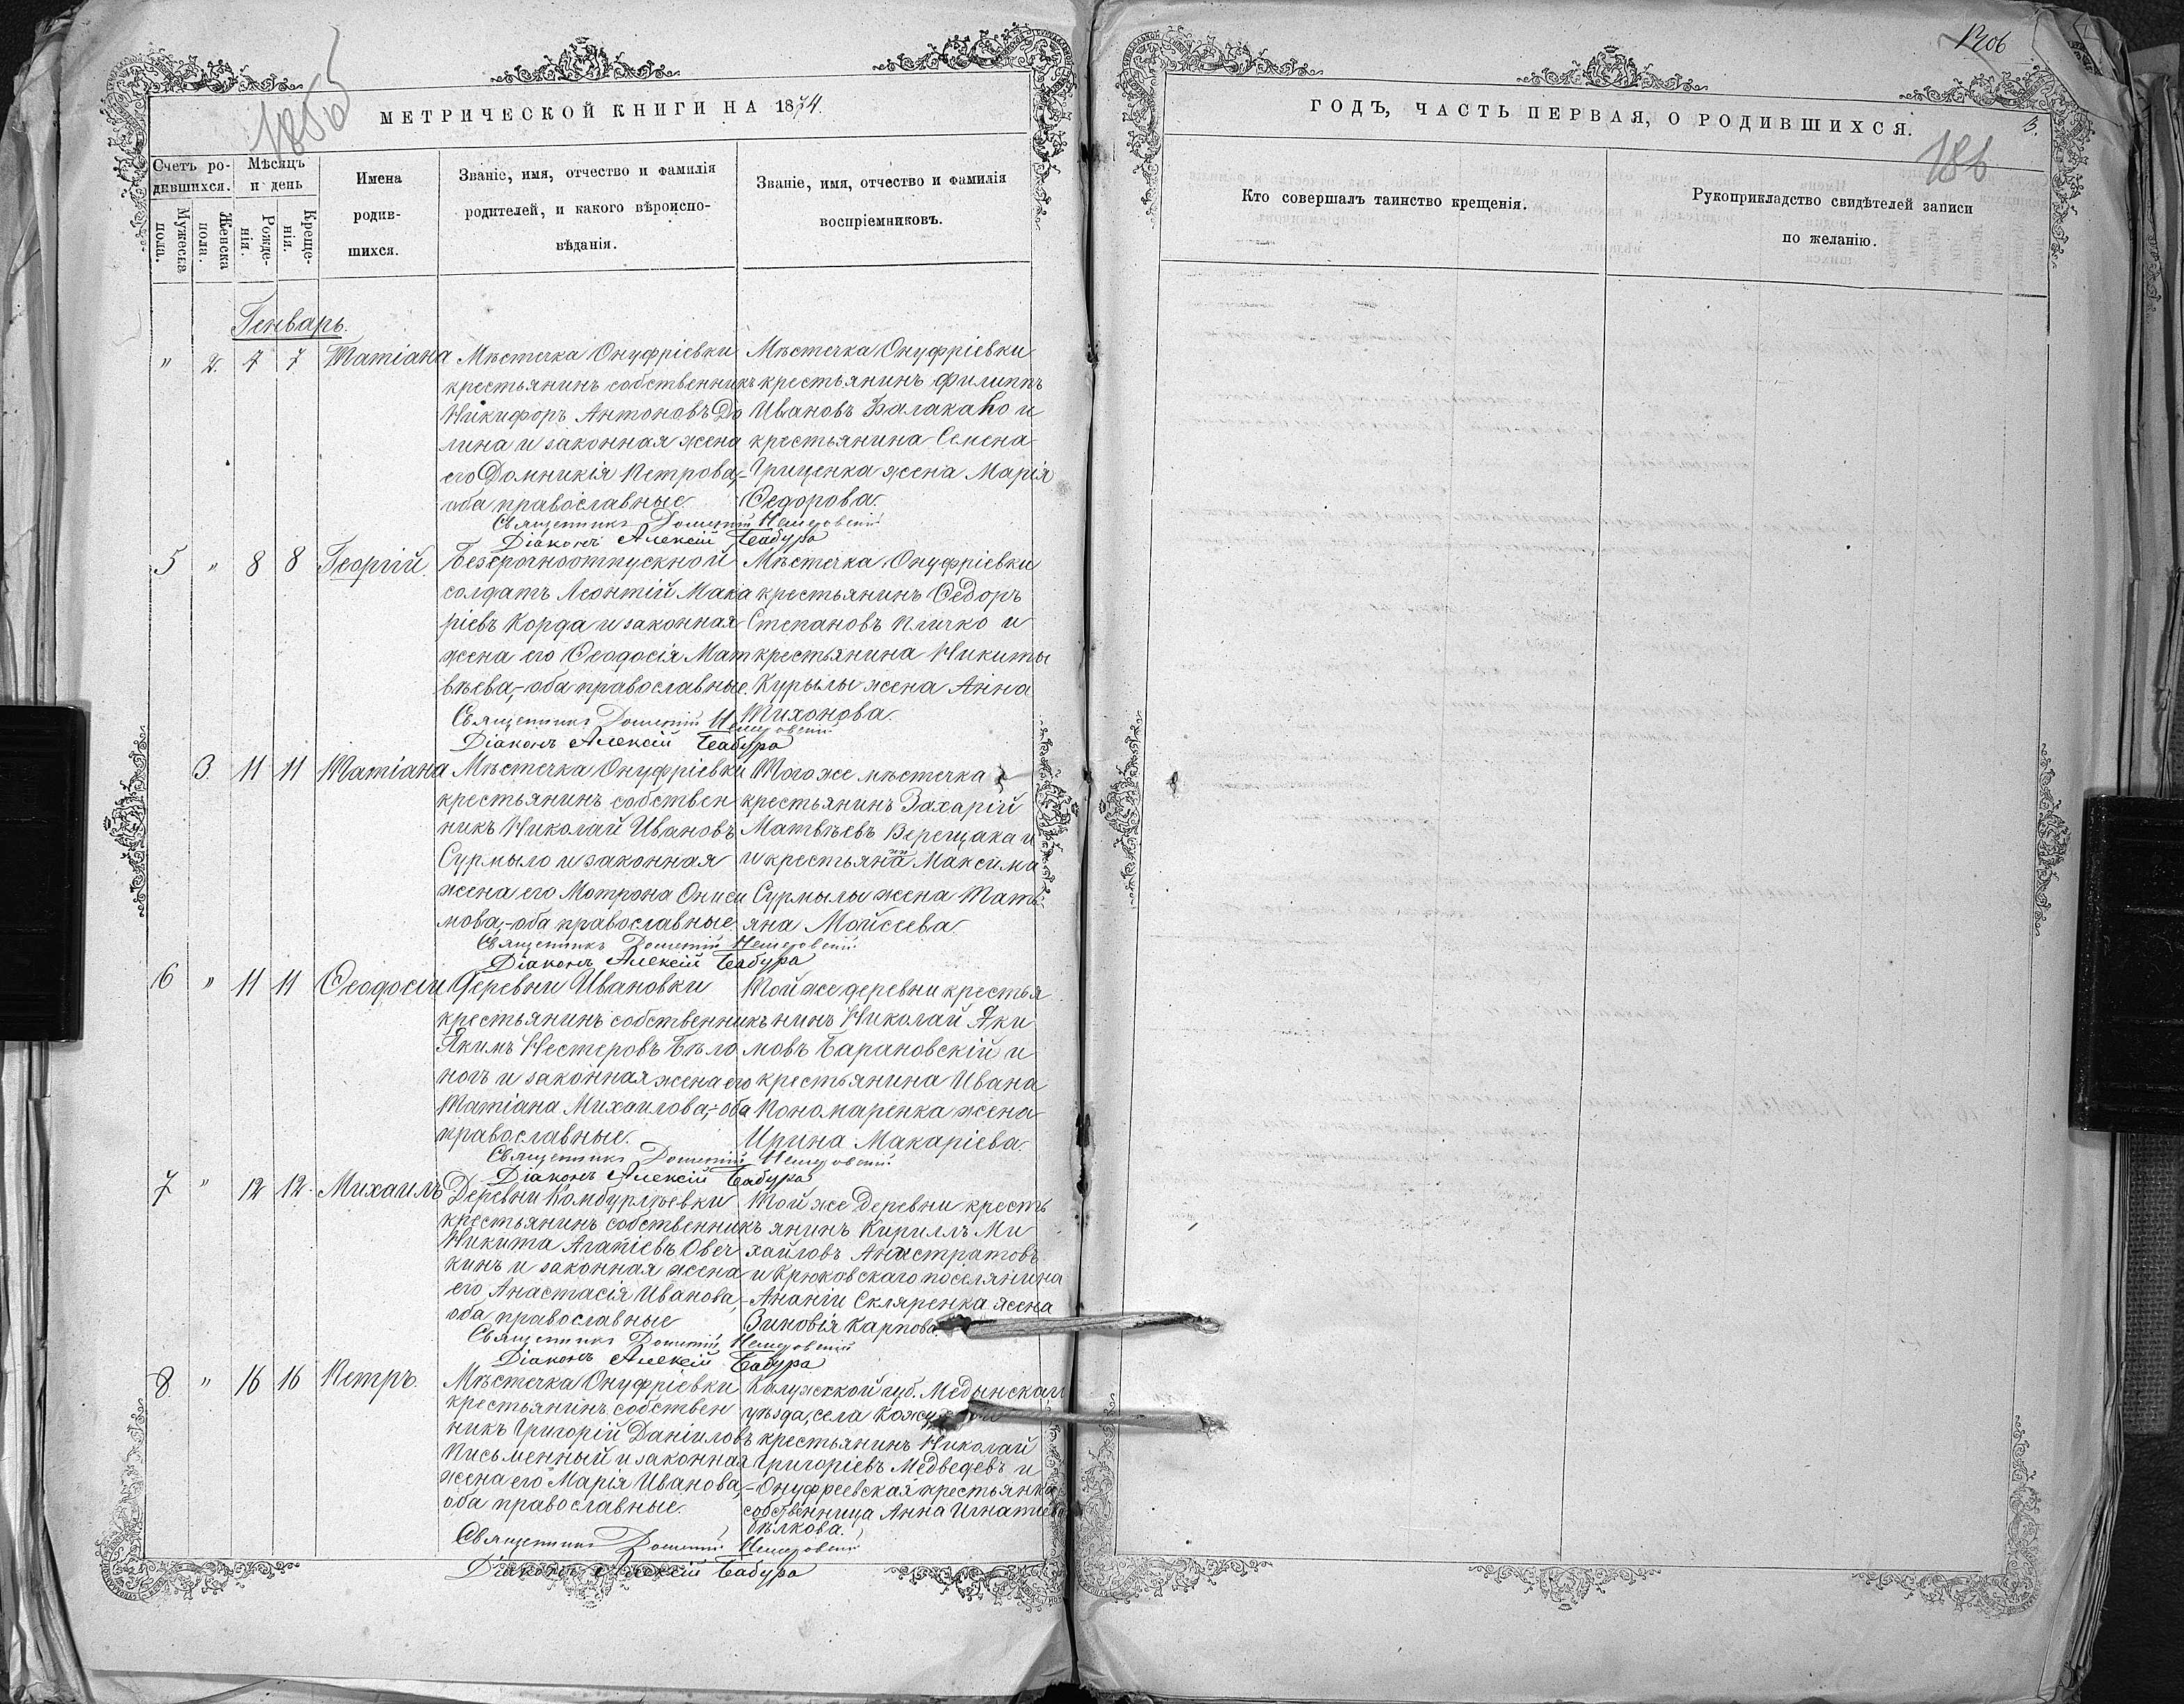 185об
МЕТРИЧЕСКОЙ КНИГИ НА 1874.
Счетъ ро-
дившихся.
Мѣсяцъ
и день
Мужеска
пола.
Женска
пола.
Рожде-
нія.
Креще-
нія.
Имена
родив-
шихся.
Званіе, имя, отчество и фамилія
родителей, и какого вѣроиспо-
вѣданія.
Званіе, имя, отчество и фамилія
воспріемниковъ.
Генварь.
" 2. 7 7 Татіана
Мѣстечка Онуфріевки
крестьянинъ собственникъ
Никифоръ Антоновъ До
лина и законная жена
его Домникія Петрова,-
оба православные.
Мѣстечка Онуфріевки
крестьянинъ Филиппъ
Ивановъ Балакано и
крестьянина Семена
Гриценка жена Марія
Ѳедорова.
Священникъ Дометій
Діаконъ Алексій Чабура
5 " 8 8 Георгій.
Безсрочноотпускной
солдатъ Леонтій Мака
ріевъ Корда и законная
жена его Ѳеодосія Мат
вѣева,-оба православные
Мѣстечка Онуфріевки
крестьянинъ Ѳедоръ
Степановъ Пличко и
крестьянина Никиты
Курылы жена Анна
Тихонова.
Священникъ Дометій
Діаконъ Алексій Чабура
3. 11 11 Татіана
Мѣстечка Онуфріевки
крестьянинъ собствен
никъ Николай Ивановъ
Сурмыло и законная
жена его Мотрона Ониси
мова,-оба православные
Того же мѣстечка
крестьянинъ Захарій
Матвѣевъ Верещака и
и крестьянина Максима
Сурмылы жена Тать-
яна Мойсеева.
Священникъ Дометій
Діаконъ Алексій Чабура
6 " 11 11 Ѳеодосій
Деревни Ивановки
крестьянинъ собственникъ
Якимъ Нестеровъ Бѣло
ногъ и законная жена его
Татіана Михаилова,-оба
православные.
Той же деревни крестья
нинъ Николай Яки
мовъ Барановскій и
крестьянина Ивана
Пономаренка жена
Ирина Макаріева.
Священникъ Дометій
Діаконъ Алексій Чабура
7 " 12 12. Михаилъ
Деревни Камбурлѣевки
крестьянинъ собственникъ
Никита Агапіевъ Овеч
кинъ и законная жена
его Анастасія Иванова,-
оба православные
Той же деревни кресть
янинъ Кириллъ Ми
хайловъ Анастратовъ
и Крюковскаго поселянина
Ананіи Скляренка жена
Зиновія Карпова
Священникъ Дометій
Діаконъ Алексій Чабура
8. " 16 16 Петръ.
Мѣстечка Онуфріевки
крестьянинъ собствен
никъ Григорій Даніиловъ
Письменный и законная
жена его Марія Иванова,-
оба православные.
Калужской губ. Медынскаго
уѣзда, села
крестьянинъ Николай
Григоріевъ Медведевъ и
Онуфреевская крестьянка
собственница Анна Игнатіева
Бѣлкова.
Священникъ Дометій
Діаконъ Алексій Чабура
ГОДЪ, ЧАСТЬ ПЕРВАЯ, О РОДИВШИХСЯ.
3.
186
Кто совершалъ таинство крещенія.
Рукоприкладство свидѣтелей записи
по желанію.